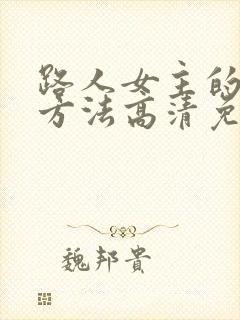 路人女主的
方法高清免
魏邦貴